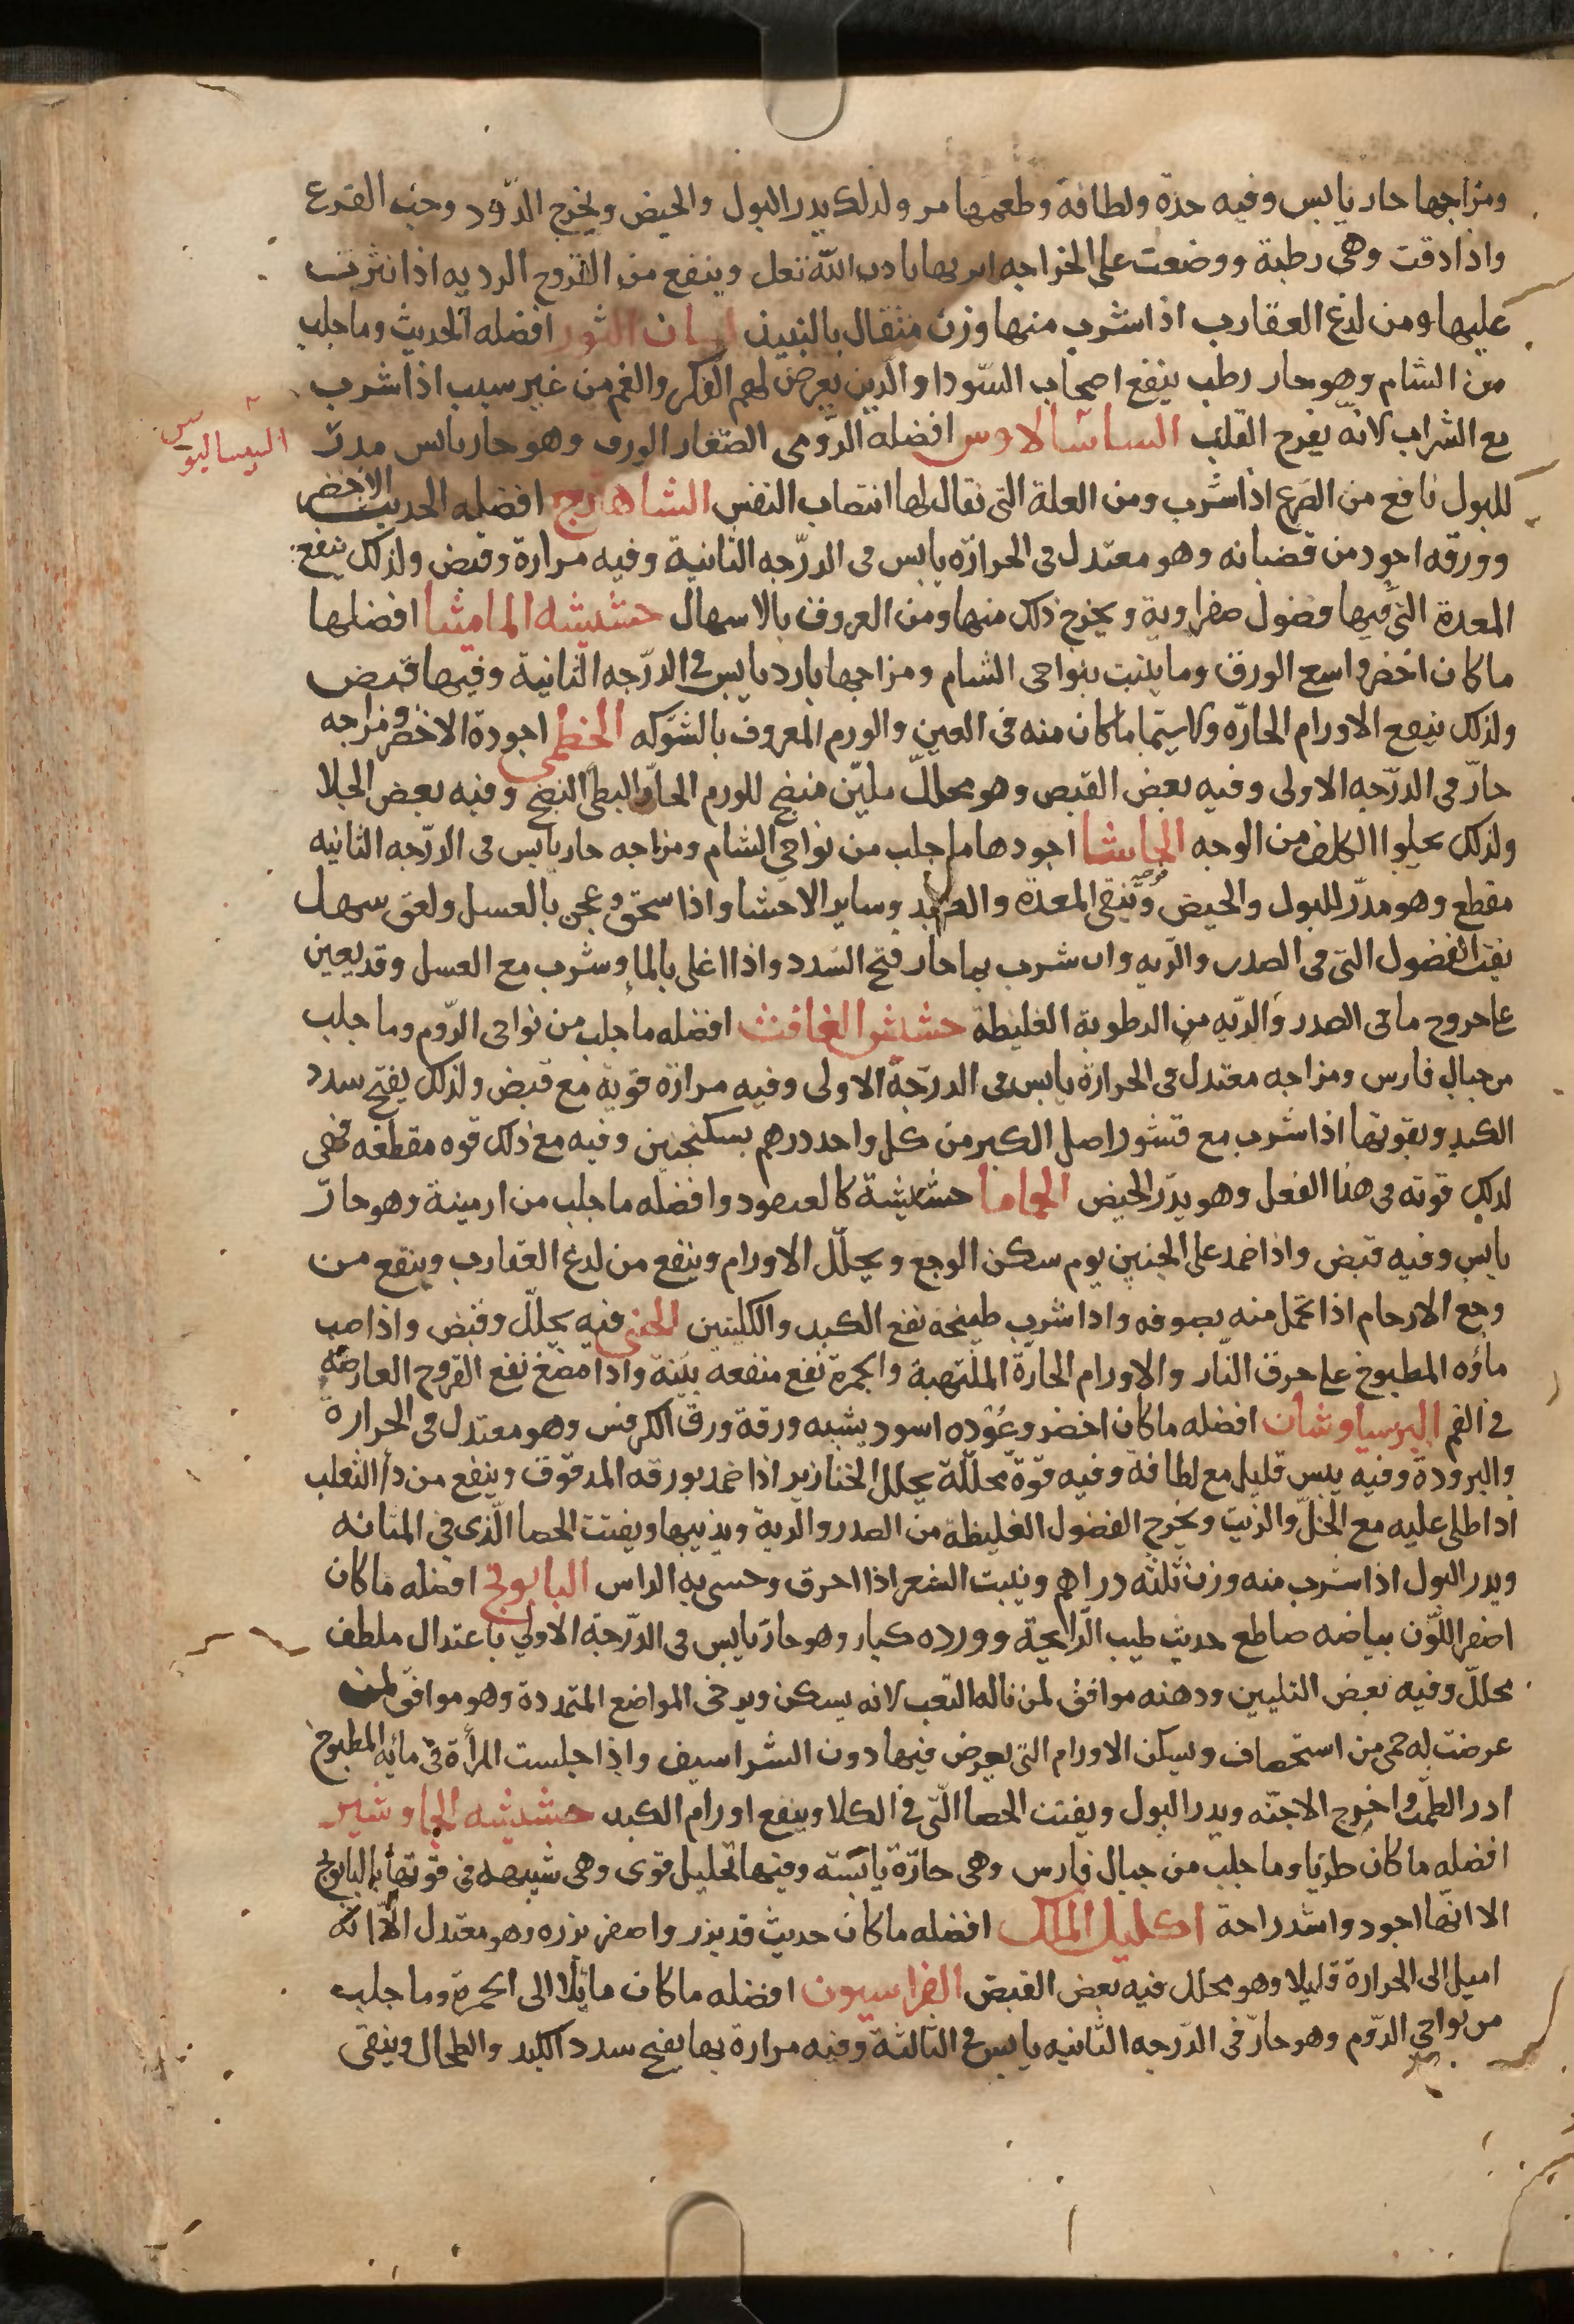 ومزاجها حار يابس وفيه حدة ولطافة وطعمها مر ولذلك يدر البول والحيض ويخرج الدود وحب القرع
واذا دقت وهى رطبة ووضعت على الخراجه ابر بها باذن الله تعلى وينفع من القروح الرديه اذا نثرت
عليها ومن لدغ العقارب اذا شرب منها وزن مثقال بالنبيذ لسان الثور افضله الحديث وما جلب
من الشام وهو حار رطب ينفع اصحاب السودا والذين يعرض لهم الفكر والغم من غير سبب اذا شرب
مع الشراب لانه يفرح القلب الساسالاوس افضله الرومى الصغار الورق وهو حار يابس مدر
السيساليوس
للبول نافع من الصرع اذا شرب ومن العلة التى تقال لها انتصاب النفس الشاهترج افضله الحديث الاخضر
وورقه اجود من قضبانه وهو معتدل فى الحرارة يابس فى الدرجه الثانية وفيه مرارة وقبض ولذلك ينفع
المعدة التى فيها فضول صفراوية ويخرج ذلك منها ومن العروق بالاسهال حشيشه المامثا افضلها
ما كان اخضر واسع الورق وما ينبت بنواحى الشام ومزاجها بارد يابس فى الدرجه الثانية وفيها قبض
ولذلك ينفع الاورام الحارة ولاسيما ما كان منه فى العين والورم المعروف بالشوكه الخطمى اجودة الاخضر ومزاجه
حار فى الدرجه الاولى وفيه بعض القبض وهو محلل ملين منضج للورم الحار البطئ النضج وفيه بعض الجلا
ولذلك يجلوا الكلف من الوجه الحاشا اجودها ما جلب من نواحى الشام ومزاجه حار يابس فى الدرجه الثانيه
مقطع وهو مدر للبول والحيض وينقى المعدة والكبد وساير الاحشا واذا سحق وعجن بالعسل ولعق سهل
نفث الفضول التى فى الصدر والريه وان شرب بما حار فتح السدد واذا اغلى بالما وشرب مع العسل وقد يعين
على خروج ما فى الصدر والريه من الرطوبة الغليظة حشيش الغافث افضله ما جلب من نواحى الروم وما جلب
من جبال فارس ومزاجه معتدل فى الحرارة يابس فى الدرجة الاولى وفيه مرارة قوية مع قبض ولذلك يفتح سدد
الكبد ويقويها اذا شرب مع قشور اصل الكبر من كل واحد درهم بسكنجبين وفيه مع ذلك قوه مقطعه فهى
لذلك قوته فى هذا الفعل وهو يدر الحيض الحاما حشيشة كالعنقود وافضله ما جلب من ارمينة وهو حار
يابس وفيه قبض واذا ضمد على الجنبين يوم سكن الوجع ويحلل الاورام وينفع من لدغ العقارب وينفع من
وجع الارحام اذا تحمل منه بصوفه واذا شرب طبيخه نفع الكبد والكليتين الحنى فيه يحلل وقبض واذا صب
ماؤه المطبوخ على حرق النار والاورام الحارة الملتهبة والجمرة نفع منفعة بينة واذا مضغ نفع القروح العارضه
فى الفم البرسياوشان افضله ما كان اخضر وعوده اسود يشبه ورقة ورق الكرفس وهو معتدل فى الحرارة
والبرودة وفيه يبس قليل مع لطافة وفيه قوة محللة يحلل الخنازير اذا ضمد بورقه المدقوق وينفع من دأ الثعلب
اذا طلى عليه مع الخل والزيت ويخرج الفضول الغليظة من الصدر والرية ويذيبها ويفتت الحصا الذى فى المثانه
ويدر البول اذا شرب منه وزن ثلثه دراهم وينبت الشعر اذا احرق وحشى به الراس البابونج افضله ما كان
اصفر اللون بياضه صاطع حديث طيب الرايحة وورده كبار وهو حار يابس فى الدرجة الاولى باعتدال ملطف
محلل وفيه بعض التليين ودهنه موافق لمن ناله التعب لانه يسكن ويرخى المواضع المتمددة وهو موافق لمن
عرضت له حمى من استحصاف ويسكن الاورام التى يعرض فيها دون الشراسيف واذا جلست المرأة فى مائه المطبوخ
ادر الطمث واخرج الاجنه ويدر البول ويفتت الحصا التى فى الكلا وينفع اورام الكبد حشيشه الجاوشير
افضله ما كان طريا وما جلب من جبال فارس وهى حارة يابسه وفيها تحليل قوى وهى شبيهه فى قوتها بالبابونج
الا انها اجود واشد راحة اكليل الملك افضله ما كان حديث قد بزر واصفر بزره وهو معتدل الا انه
اميل الى الحرارة قليلا وهو محلل فيه بعض القبض الفراسيون افضله ما كان مائلا الى الحمرة وما جلب
من نواحى الروم وهو حار فى الدرجه الثانيه يابس فى الثالثة وفيه مرارة بها يفتح سدد الكبد والطحال وينقى